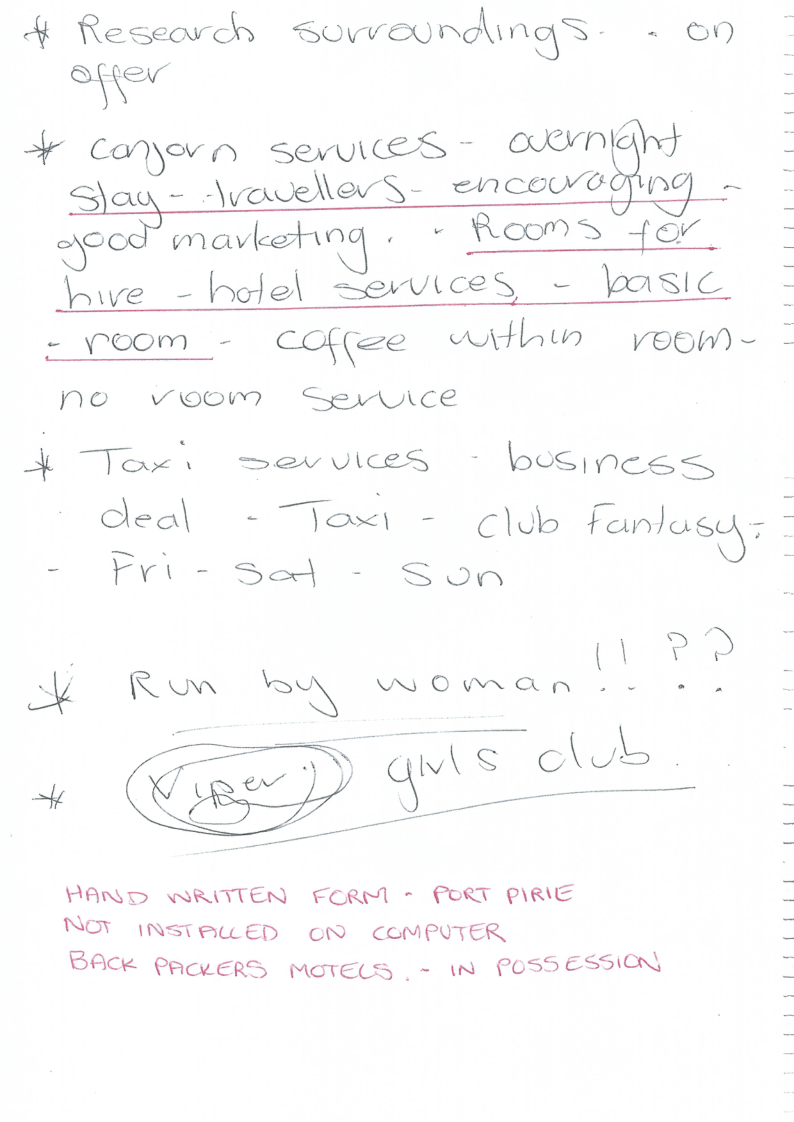 * Research surroundings. . on
offer
* conjorn services - overnight
stay - travellers - encouraging -
good marketing. . Rooms for
hire - hotel services, - basic
- room - coffee within room -
no room service
* Taxi services - business
deal - Taxi - club Fantasy -
- Fri - Sat - Sun
* Run by woman!! ??
* Viper girls club.
HAND WRITTEN FORM - PORT PIRIE
NOT INSTALLED ON COMPUTER
BACK PACKERS MOTELS. - IN POSSESSION